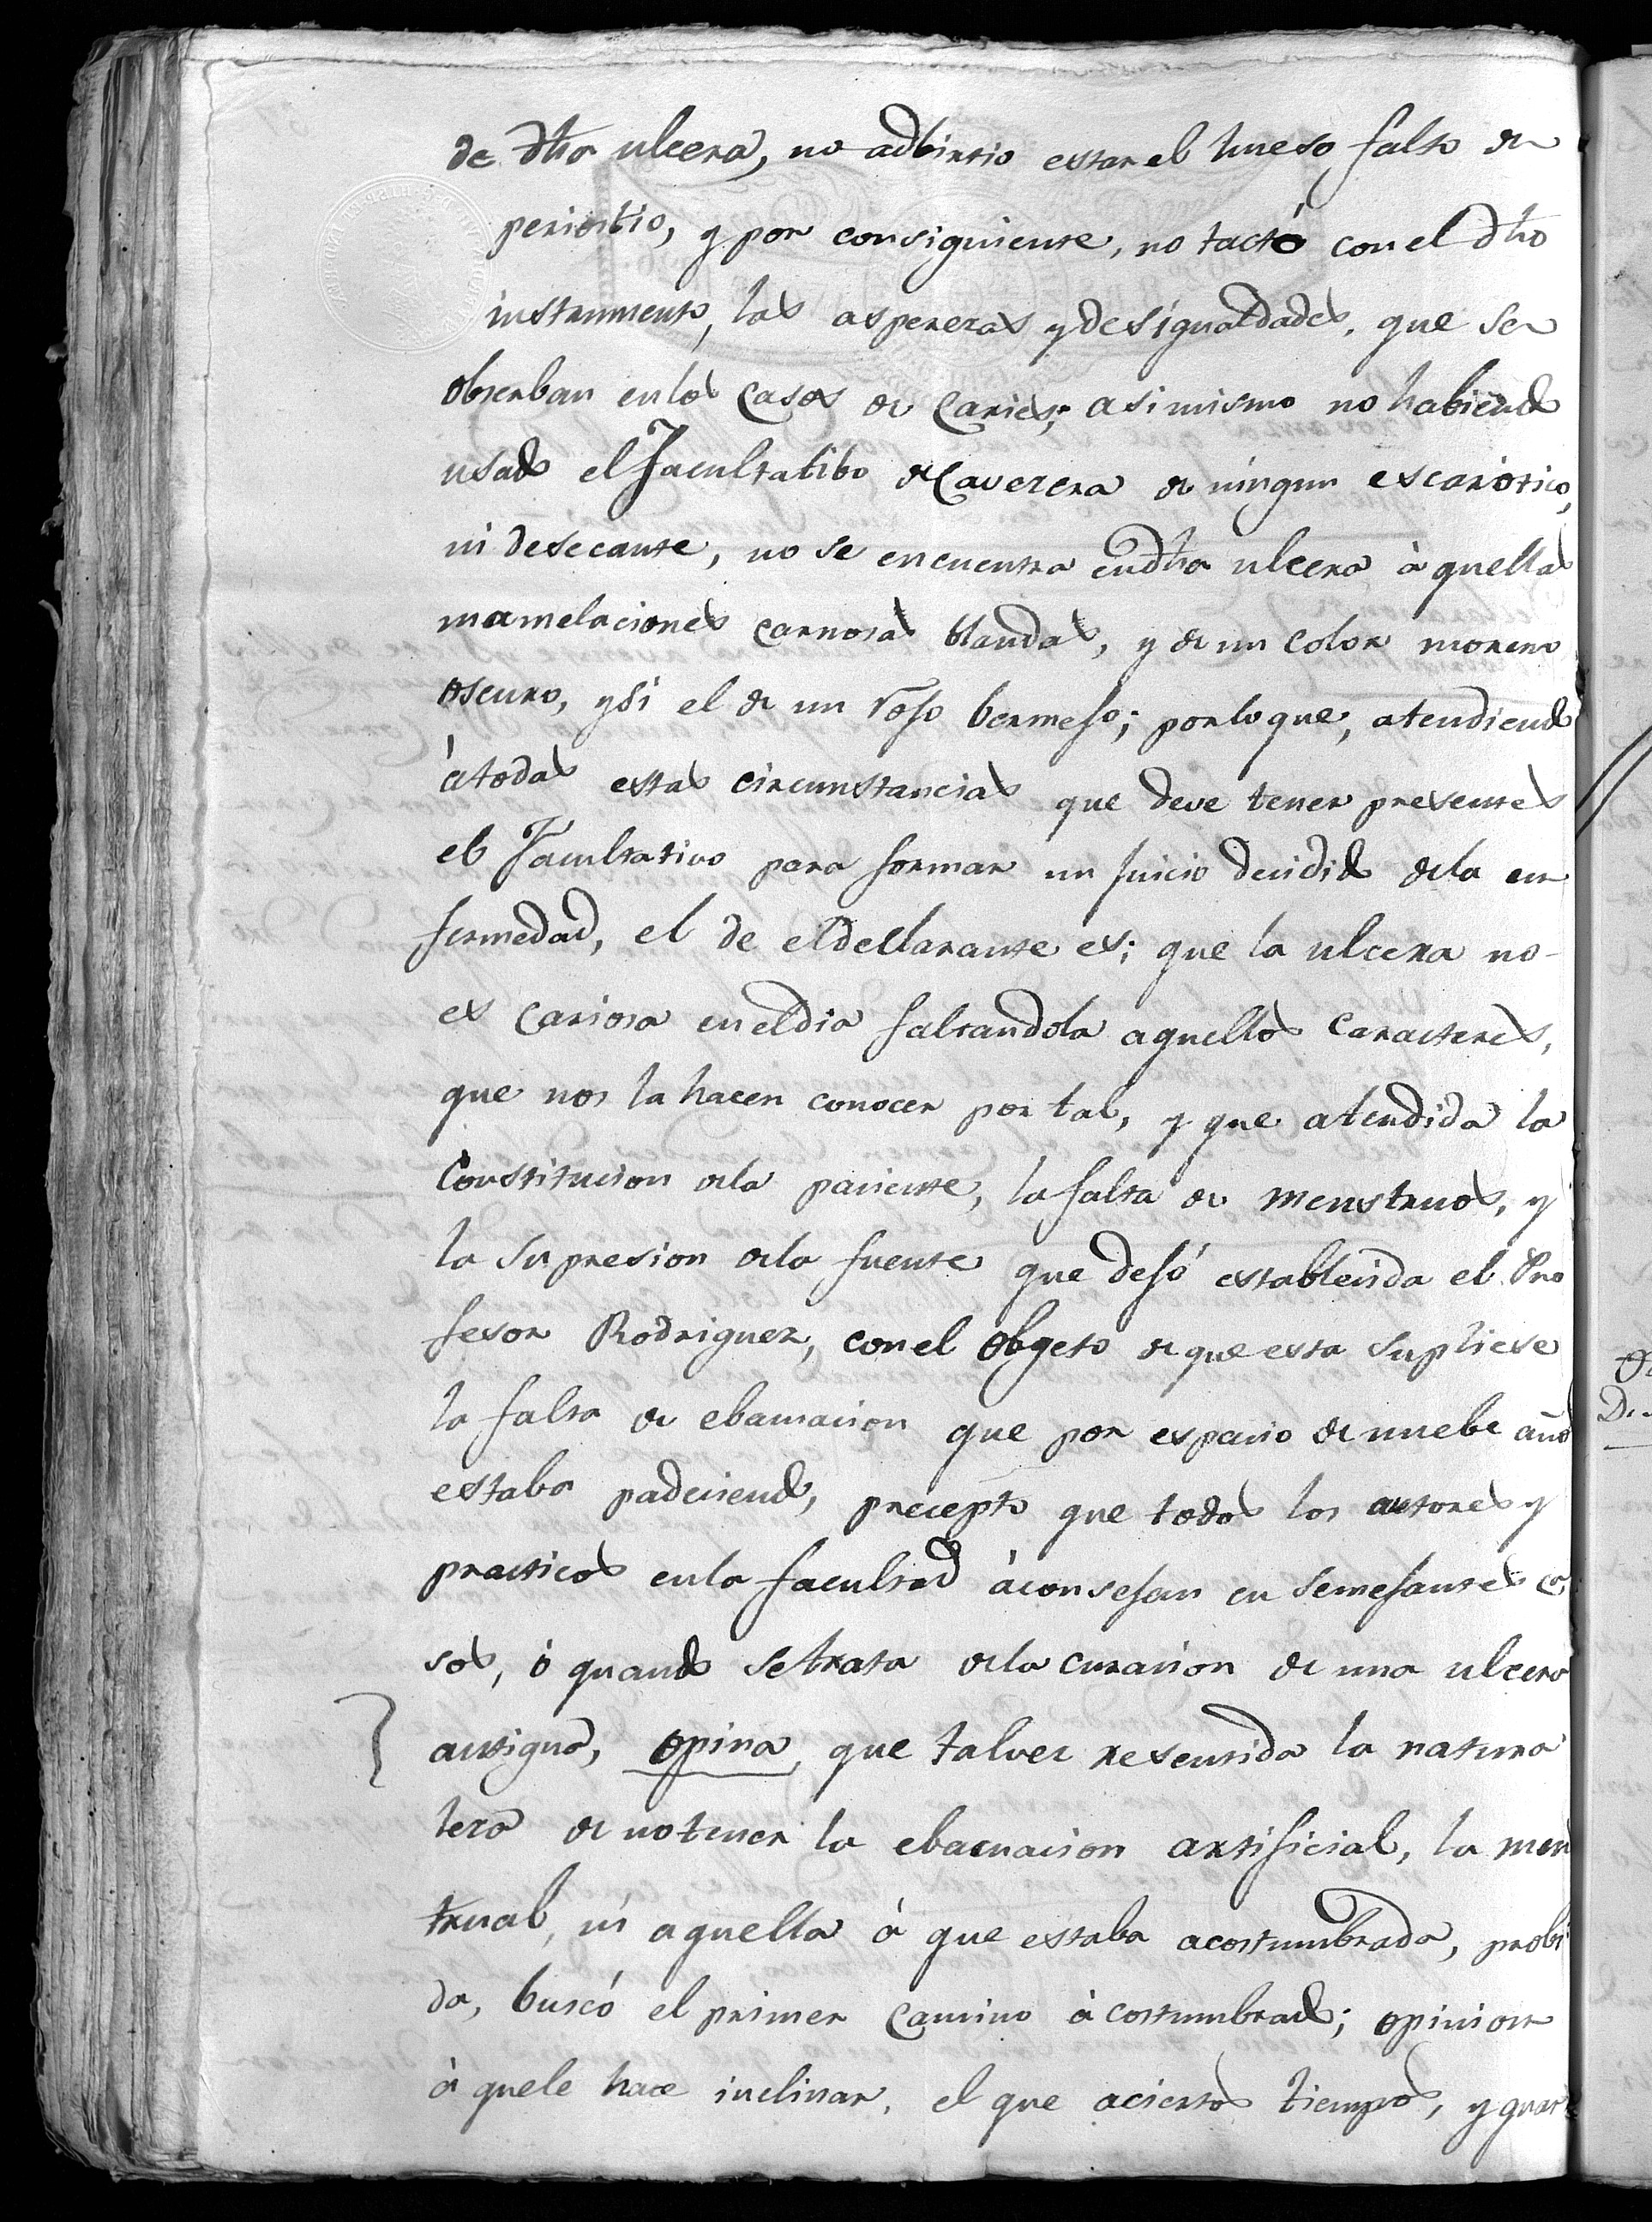 de dha ulcera, no adbirtio estar el hueso falto de
periostio, y por consiguiente, no tactó con el dho
instrumento, las asperezas y desigualdades, que se
obserban en los casos de caries; asimismo no habiendo
usado el Facultatibo de Cavecera de ningun escarótico,
ni desecante, no se encuentra en dha ulcera àquellas
mamelaciones carnosas blandas, y de un color moreno
oscuro, y sí el de un rojo bermejo; por lo que, atendiendo
à todas estas circunstancias que deve tener presentes
el Facultativo para formar un juicio decidido de la en
fermedad, el de el declarante es; que la ulcera no
es cariosa en el dia faltandola aquellos caracteres,
que nos la hacen conocer por tal, y que atendida la
Constitucion de la paciente, la falta de menstruos, y
la supresion de la fuente que dejó establecida el Pro
fesor Rodriguez, con el obgeto de que esta supliese
la falta de ebacuacion que por espacio de nuebe años
estaba padeciendo, precepto que todos los autores y
practicos en la facultad àconsejan en semejantes ca
sos, ò quando se trata de la curacion de una ulcera
antigua, opina, que talvez resentida la natura
leza de no tener la ebacuacion artificial, la mens
trual, ni aquella à que estaba acostumbrada, probi
da, buscó el primer camino àcostumbrado; opinion
à que le hace inclinar, el que à ciertos tiempos, y guar